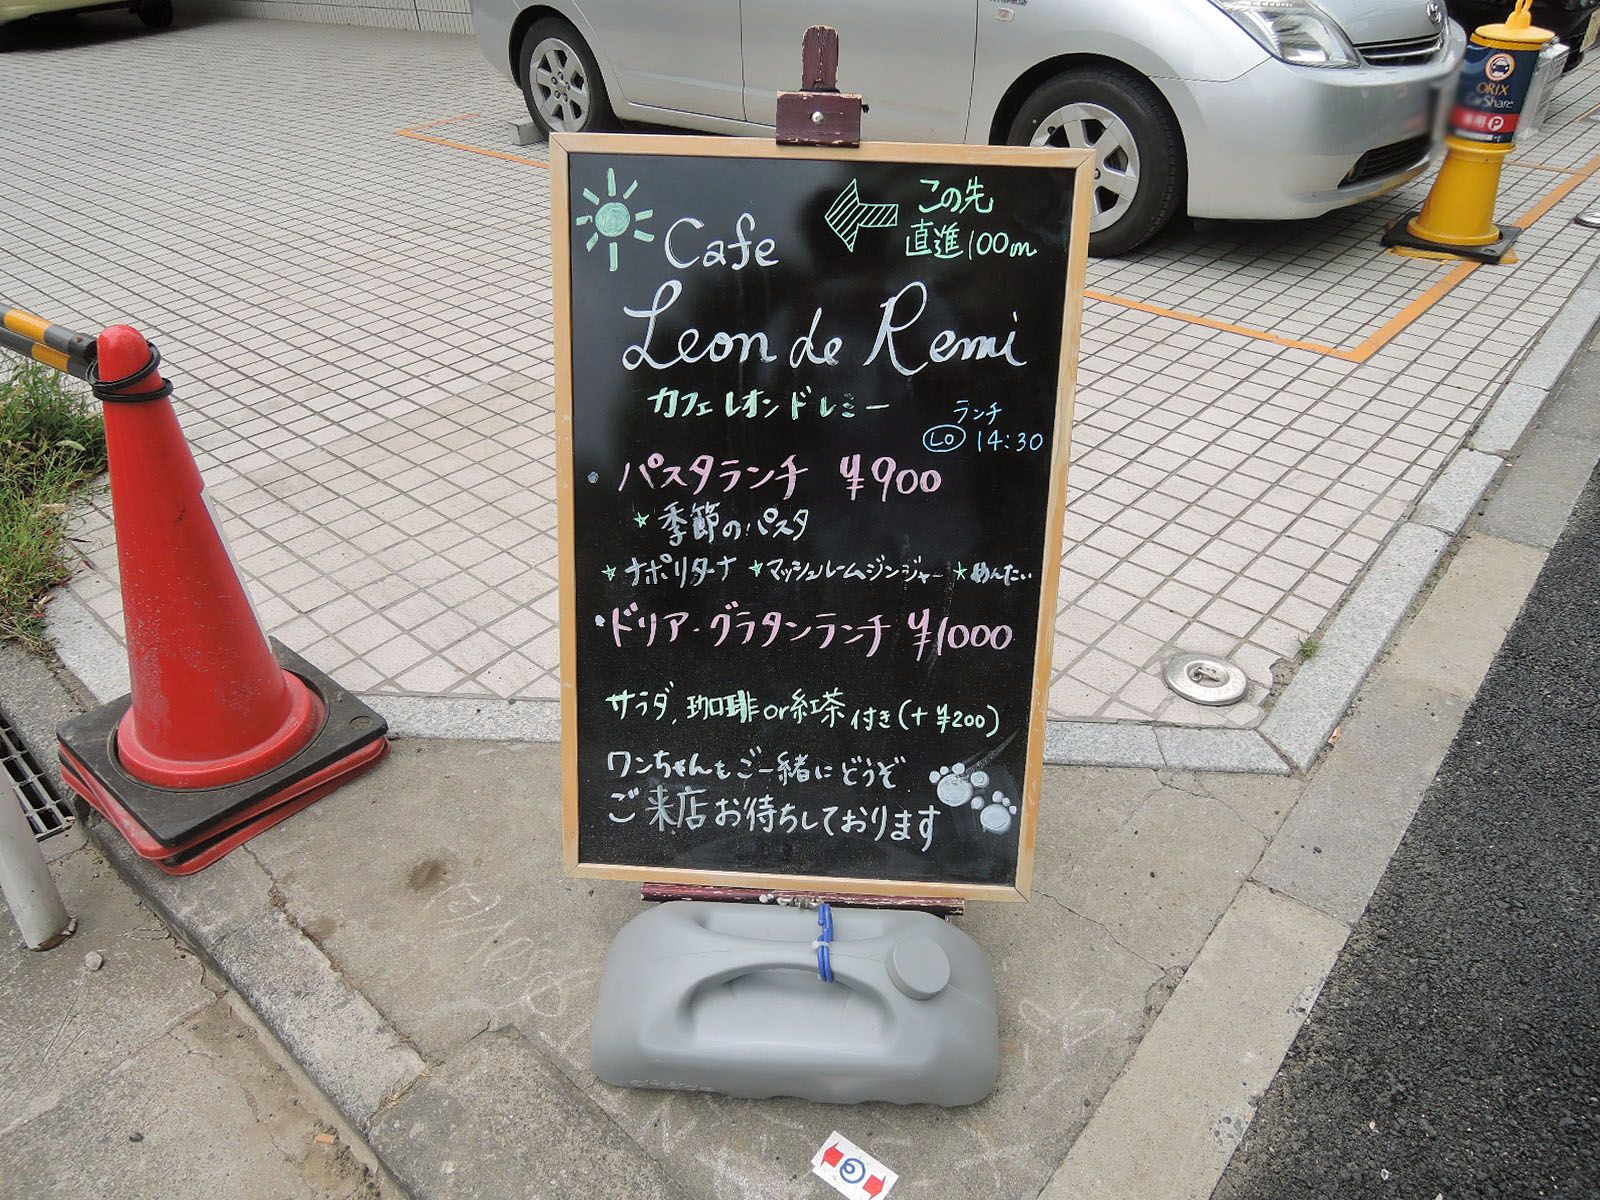 この先
直進100m
Cafe
Leon de Remi
カフェ レオンドレミー
ランチ
LO 14:30
・パスタランチ ¥900
☆季節のパスタ
☆ナポリターナ ☆マッシュルームジンジャー ☆めんたい
・ドリア・グラタンランチ ¥1000
サラダ、珈琲or紅茶 付き(+¥200)
ワンちゃんもご一緒にどうぞ.
ご来店お待ちしております
ORIX
CarShare
専用 P